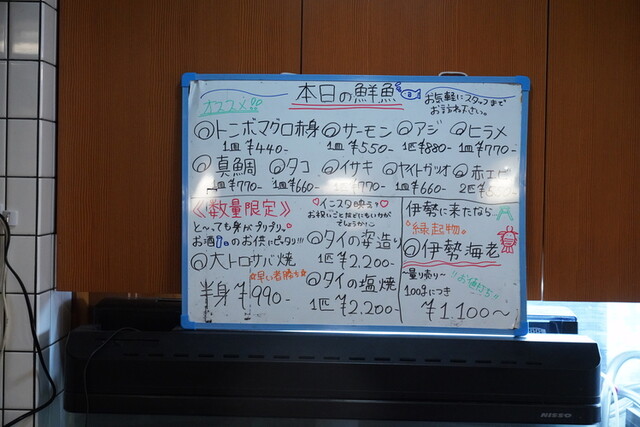 本日の鮮魚
オススメ!!
お気軽にスタッフまで
お訪ね下さい。
◎トンボマグロ赤身 ◎サーモン ◎アジ ◎ヒラメ
1皿¥440- 1皿¥550- 1匹¥880- 1皿¥770-
◎真鯛 ◎タコ ◎イサキ ◎ヤイトガツオ ◎赤エビ
1皿¥770- 1皿¥660- ¥770- 1皿¥660- 2匹
《数量限定》
と〜っても身がプリプリ。
お酒のお供にピッタリ!!!
◎大トロサバ焼
☆早い者勝ち☆
半身¥990-
♡インスタ映え♡
お祝いごとなどにもいかが
でしょうか!
◎タイの姿造り
1匹¥2.200-
◎タイの塩焼
1匹¥2.200-
伊勢に来たなら
縁起物
◎伊勢海老
〜量り売り〜
!!お値打ち!!
100gにつき
¥1.100〜
NISSO